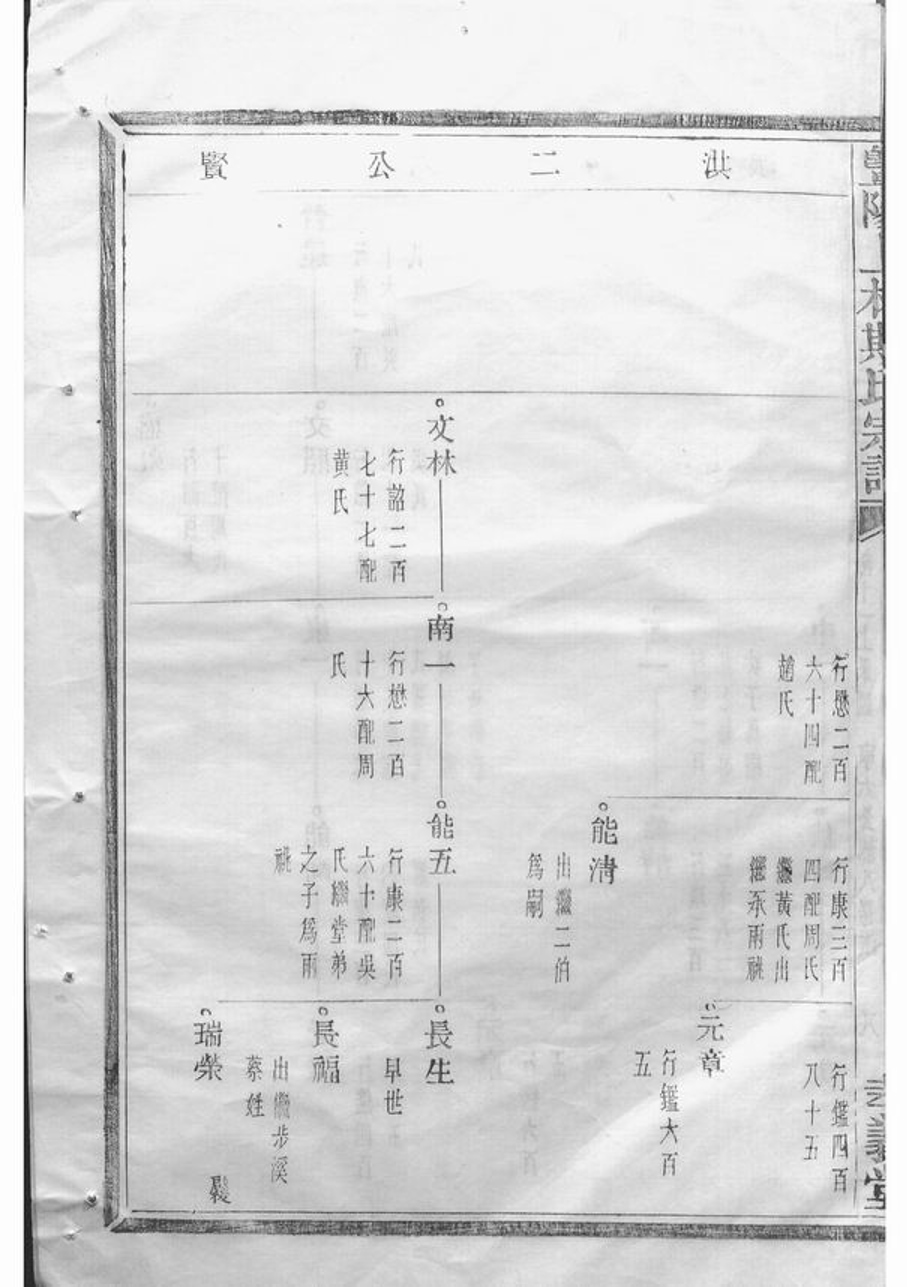 暨陽上林斯氏宗譜
孝義堂
洪二公賢
行懋二百
六十四配
趙氏
行康三百
四配周氏
繼黃氏出
繼承兩祧
行鑑四百
八十五
元章
行鑑大百
五
能清
出繼二伯
爲嗣
文林
行詔二百
七十七配
黄氏
南一
行懋二百
十大配周
氏
能五
行康二百
六十配吳
氏繼堂弟
之子爲兩
祧
長生
早世
長福
出繼步溪
蔡姓
瑞榮